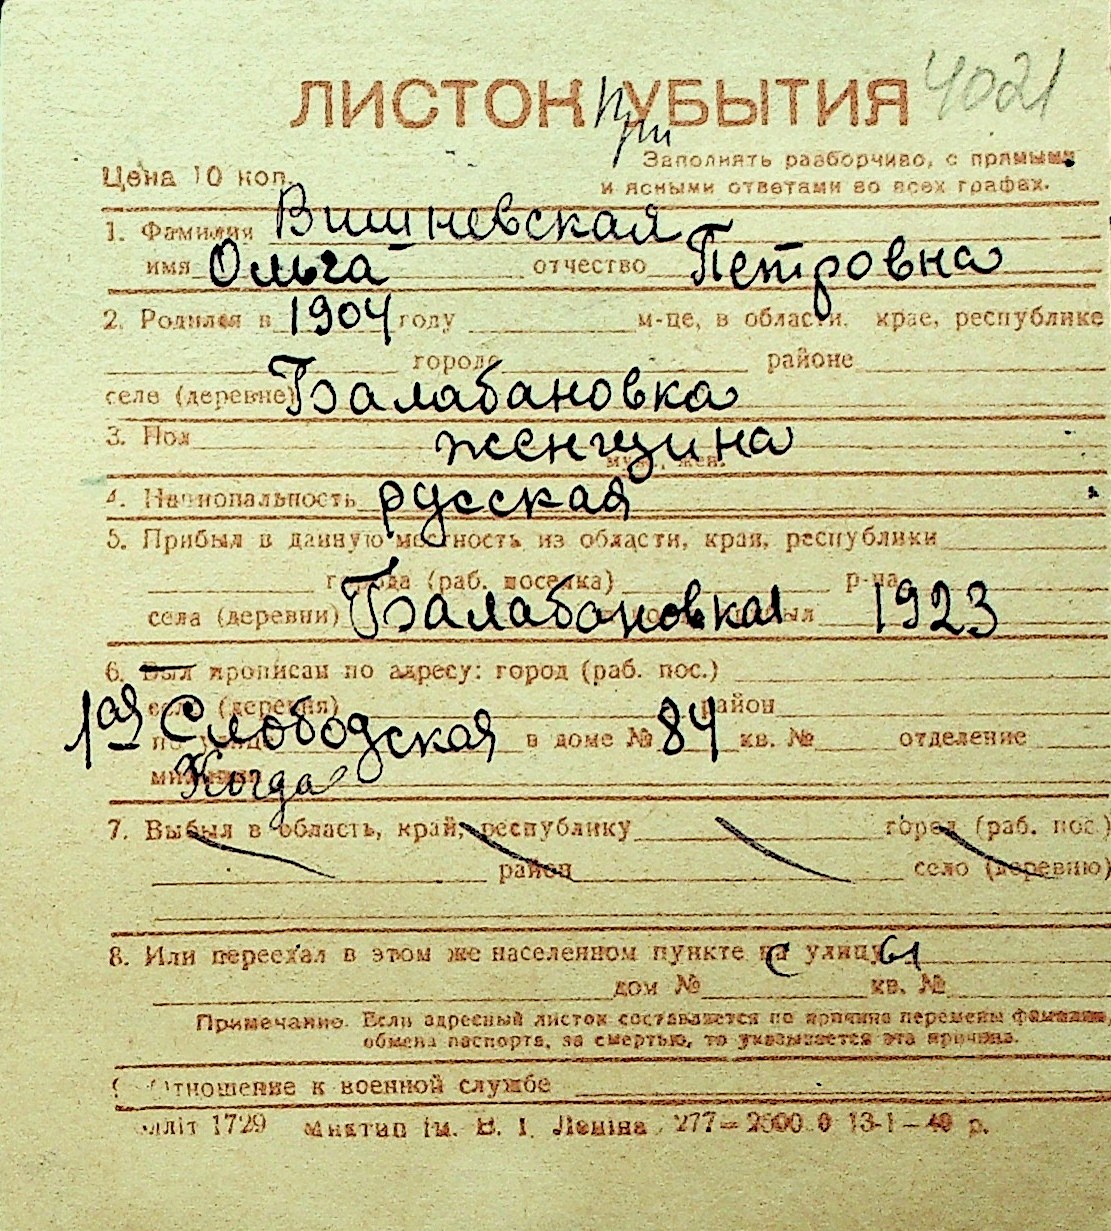 ЛИСТОК при УБЫТИЯ 4021
Цена 10 коп.
Заполнять разборчиво, с прямыми
и ясными ответами во всех графах.
1. Фамилия Вишневская
имя Ольга отчество Петровна
2. Родился в 1904 году м-це, в области, крае, республике
городе районе
селе (деревне) Балабановка
3. Пол женщина
муж., жен.
4. Национальность русская
5. Прибыл в данную местность из области, края, республики
города (раб. поселка) р-на
села (деревни) Балабановка прибыл 1923
6. Был прописан по адресу: город (раб. пос.)
село (деревня) район
1ая Слободская в доме № 84 кв. № отделение
милиции Когда
7. Выбыл в область, край, республику город (раб. пос.)
район село (деревню)
8. Или переехал в этом же населенном пункте на улицу
дом № кв. №
Примечание. Если адресный листок составляется по причине перемены фамилии,
обмена паспорта, за смертью, то указывается эта причина.
Отношение к военной службе
1729 ім. В. І. Леніна 277—2000 0 13-1—40 р.